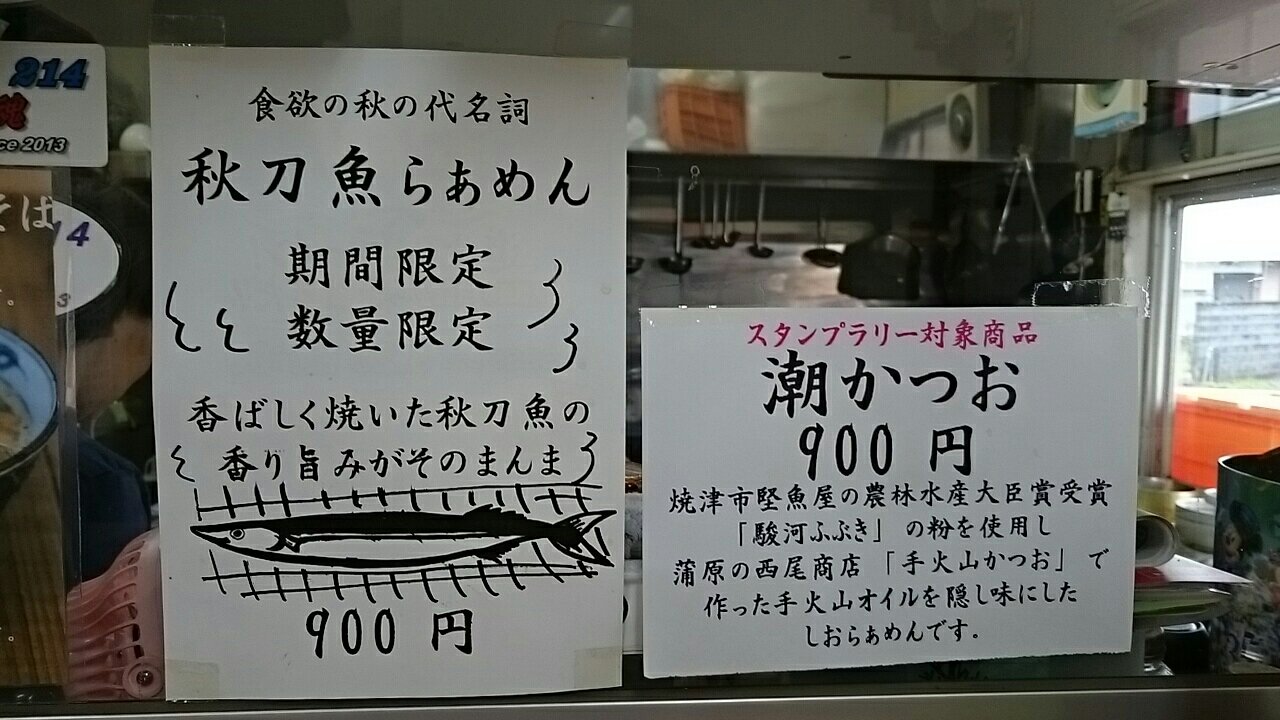 214
ce 2013
そば
14
3
食欲の秋の代名詞
秋刀魚らぁめん
期間限定
数量限定
香ばしく焼いた秋刀魚の
香り旨みがそのまんま
900 円
スタンプラリー対象商品
潮かつお
900 円
焼津市堅魚屋の農林水産大臣賞受賞
「駿河ふぶき」の粉を使用し
蒲原の西尾商店「手火山かつお」で
作った手火山オイルを隠し味にした
しおらぁめんです.